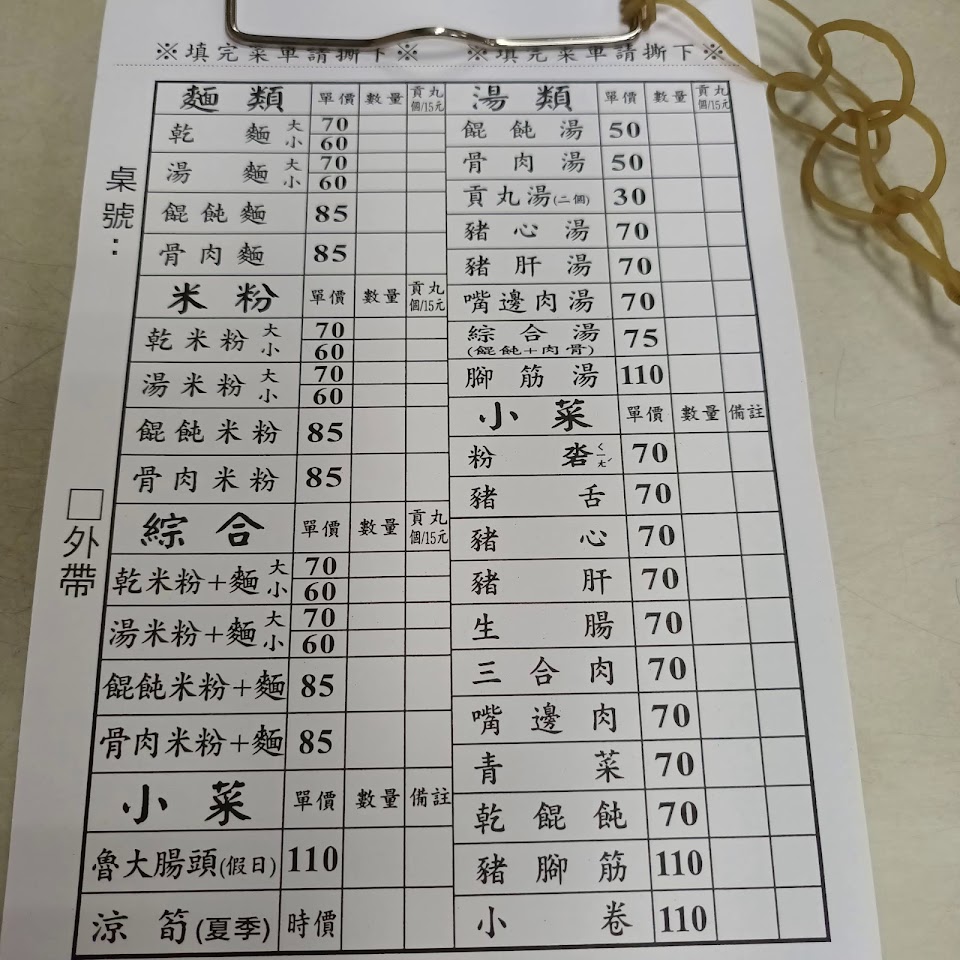 ※填完菜單請撕下※ ※填完菜單請撕下※
桌號：
□外帶
麵類 單價 數量 貢丸個/15元
乾麵 大 70
小 60
湯麵 大 70
小 60
餛飩麵 85
骨肉麵 85
米粉 單價 數量 貢丸個/15元
乾米粉 大 70
小 60
湯米粉 大 70
小 60
餛飩米粉 85
骨肉米粉 85
綜合 單價 數量 貢丸個/15元
乾米粉+麵 大 70
小 60
湯米粉+麵 大 70
小 60
餛飩米粉+麵 85
骨肉米粉+麵 85
小菜 單價 數量 備註
魯大腸頭(假日) 110
涼筍(夏季) 時價
湯類 單價 數量 貢丸個/15元
餛飩湯 50
骨肉湯 50
貢丸湯(二個) 30
豬心湯 70
豬肝湯 70
嘴邊肉湯 70
綜合湯 75
(餛飩+肉骨)
腳筋湯 110
小菜 單價 數量 備註
粉 ㄑㄧㄤˊ 70
豬舌 70
豬心 70
豬肝 70
生腸 70
三合肉 70
嘴邊肉 70
青菜 70
乾餛飩 70
豬腳筋 110
小卷 110